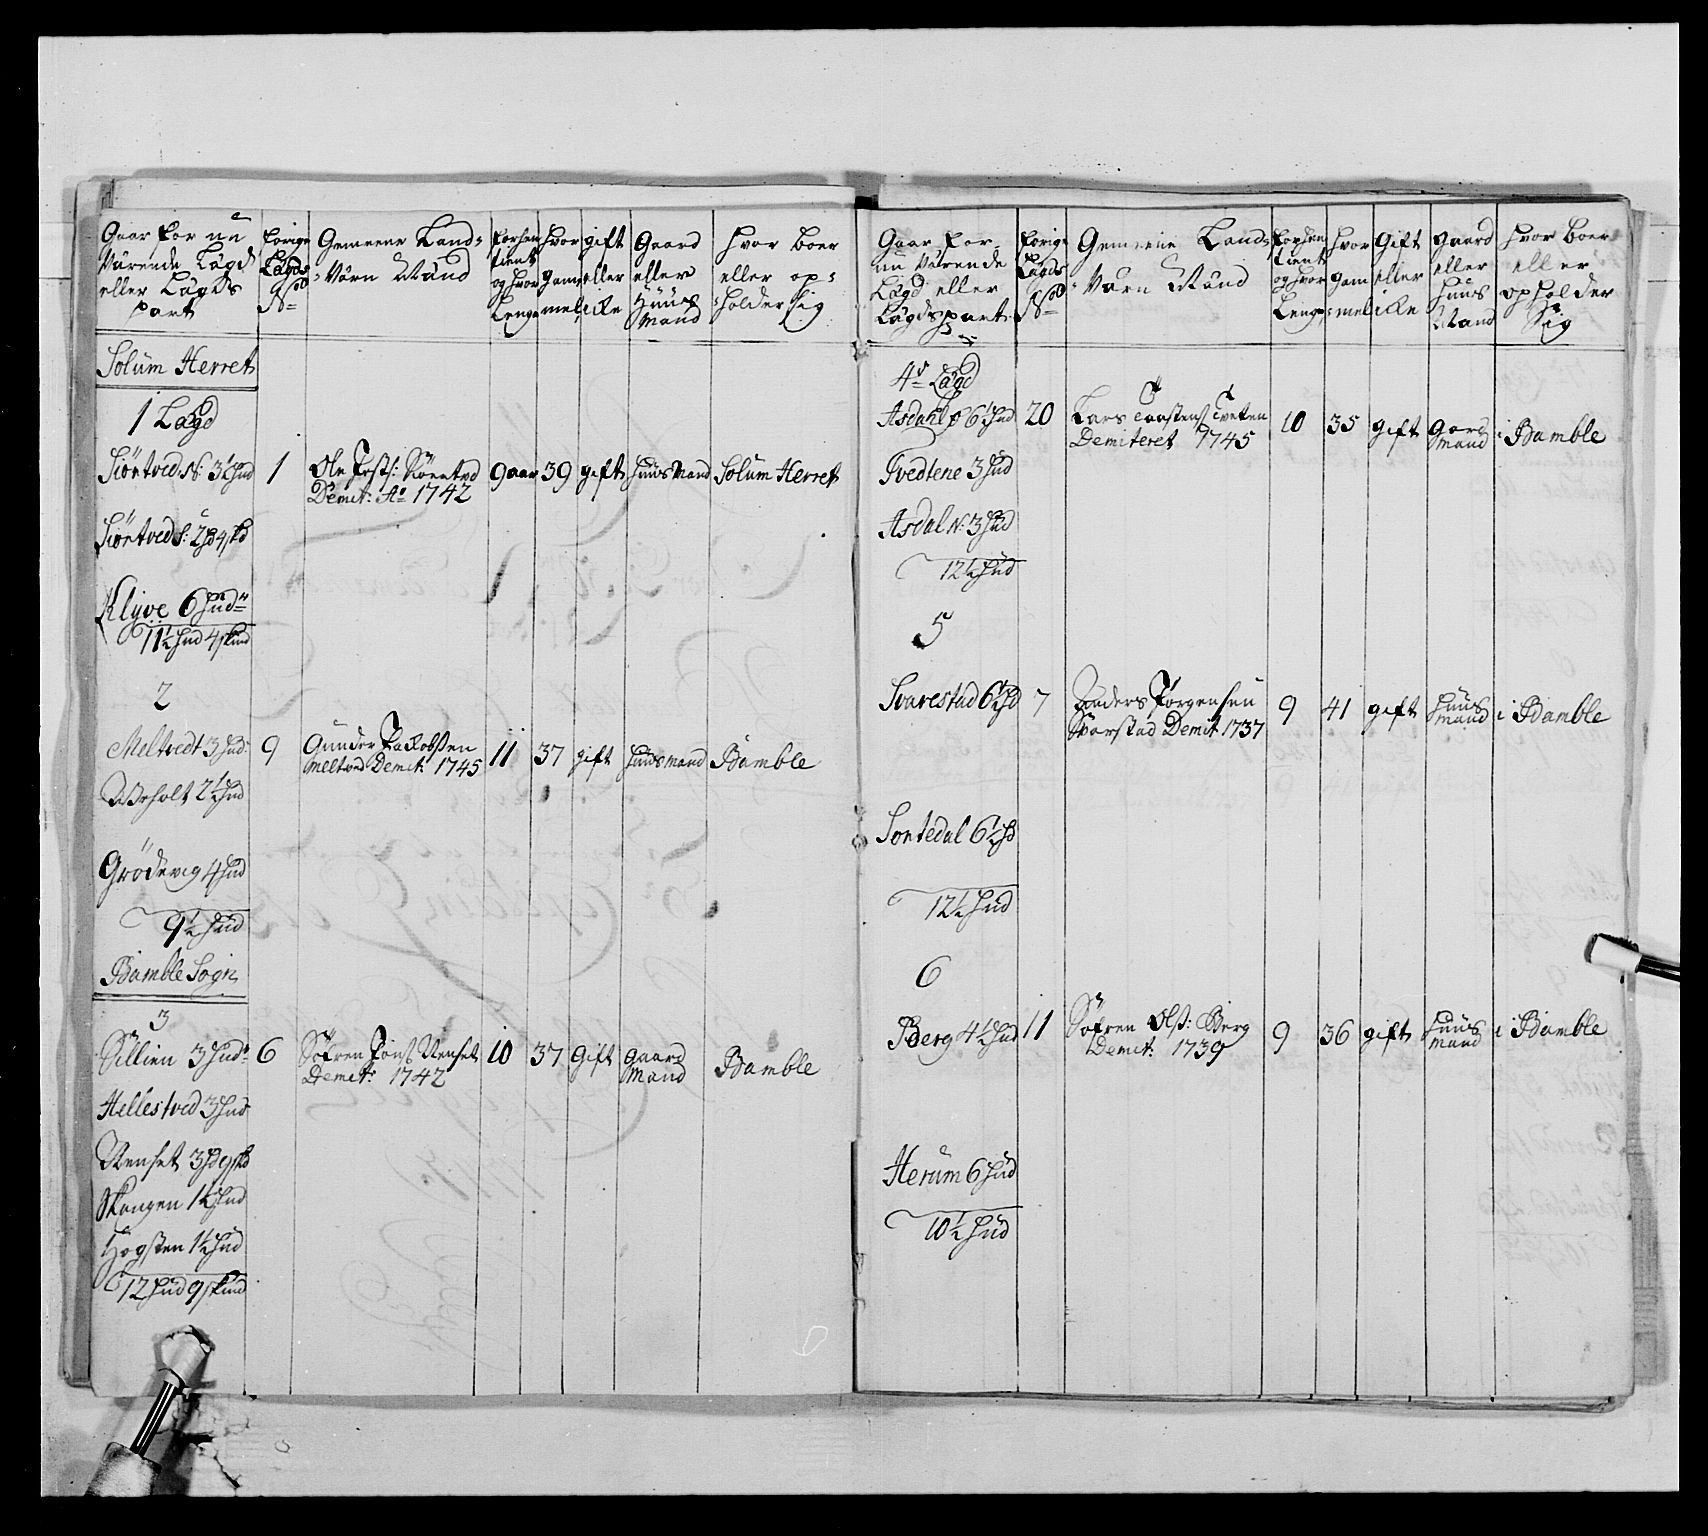 Gaar for nu
Værende Lægd
eller Lægds
part
Forige
Lægds
No
Gemeene Land-
Værn Mænd
Forhen
tient
og hvor
Lenge
Hvor
gam̄el
gift
eller
icke
Gaard
eller
Huus
Mand
Hvor boer
eller op-
holder sig
Solum Herret
1 Lægd
Siørtved N: 3½ Hud
1
Ole Jost: Siørtved
Demit: Ao 1742
9 aar
39
gift
Huus Mand
Solum Herret
Siørtved S: 2 Hd 4 skd
Klyve 6 Hud
11½ Hud 4 skind
2
Meltvedt 3 Hud
9
Gunder Jacobsen
Meltved Demit: 1745
11
37
gift
Huus Mand
Bamble
Wrholt 2½ Hud
Grødevig 4 Hud
9½ Hud
Bamble Sogn
3
Sillien 3 Hud
6
Søfren Jons Uenset
Demit: 1742
10
37
Gift
Gaard
Mand
Bamble
Hellestved 3 Hud
Uenset 3 Hd 9 skd
Skougen 1½ Hud
Hogsten 1½ Hud
12 Hud 9 skind
Gaar for-
nu Værende
Lægd eller
Lægdspart
Forige
Lægds
No
Gemeene Land-
Værn Mænd
Forhen
tient
og hvor
Lenge
Hvor
gam-
mel
Gift
eller
icke
Gaard
eller
Huus
Mand
Hvor boer
eller
opholder
Sig
4de Lægd
Asdahl S 6½ Hud
20
Lars Taastens Tveten
Demiteret 1745
10
35
gift
Gard
Mand
i Bamble
Tvedtene 3 Hud
Asdal N: 3 Hud
12½ Hud
5
Svarestad 6½ Hd
7
Anders Jørgensen
Svarstad Demit 1737
9
41
gift
Huus
Mand
i Bamble
Sontedal 6½ Hd
12½ Hud
6
Berg 4½ Hud
11
Søfren Ols: Berg
Demit: 1739
9
36
gift
Huus
Mand
i Bamble
Herum 6 Hud
10½ Hud